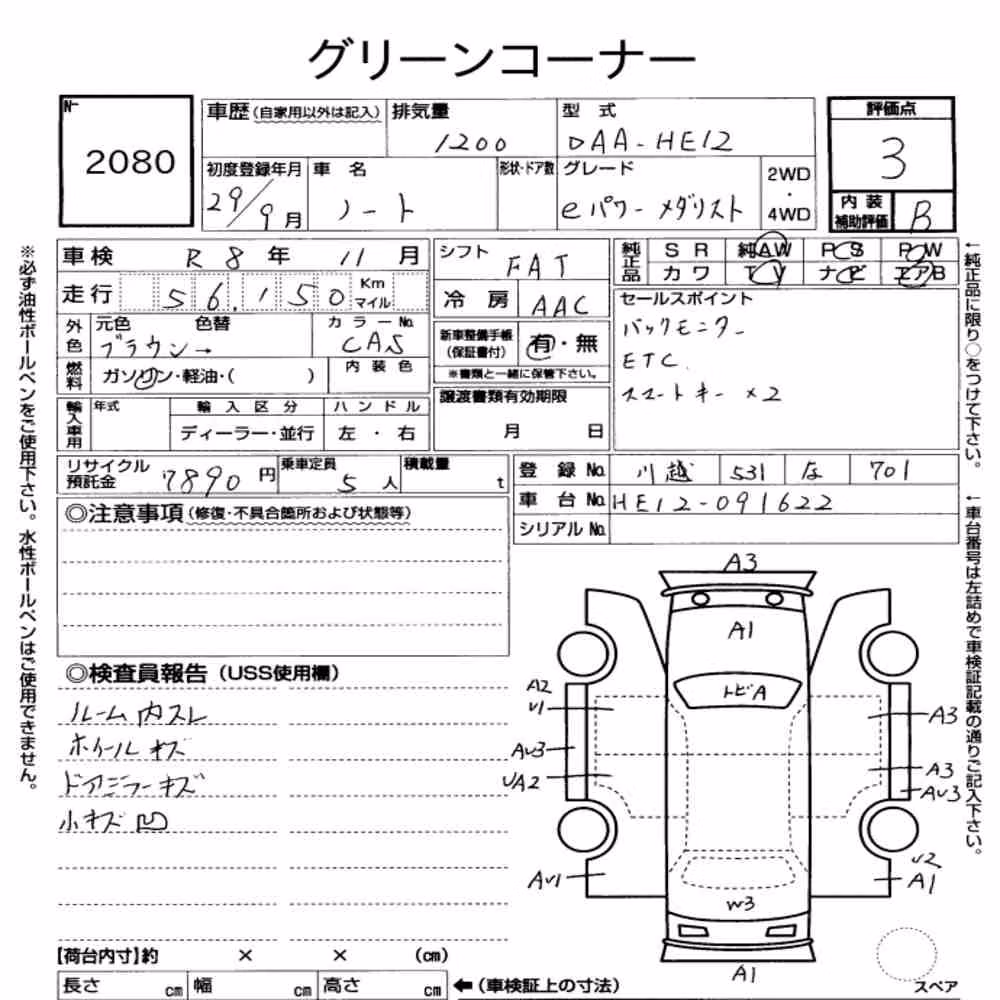 グリーンコーナー
№
2080
車歴(自家用以外は記入) 排気量 1200 型式 DAA-HE12 評価点 3
初度登録年月 29/9月 車名 ノート 形状・ドア数 グレード eパワーメダリスト 2WD・4WD 内装補助評価 B
車検 R8年 11月 シフト FAT 純正品 SR 純AW PS PW
カワ TV ナビ エアB
走行 56,150 Km マイル 冷房 AAC セールスポイント
外色 元色 ブラウン→ 色替 カラーNo. CAS 新車整備手帳(保証書付) 有・無 バックモニター
※書類と一緒に保管下さい。 ETC.
燃料 ガソリン・軽油・( ) 内装色 スマートキー×2
輸入車用 年式 輸入区分 ハンドル 譲渡書類有効期限
ディーラー・並行 左・右 月 日
リサイクル預託金 7890円 乗車定員 5人 積載量 t 登録No. 川越 531 な 701
車台No. HE12-091622
シリアルNo.
◎注意事項(修復・不具合箇所および状態等)
◎検査員報告(USS使用欄)
ルーム内スレ
ホイールキズ
ドアミラーキズ
小キズ凹
A3
A1
トビA
A2
U1
AU3
UA2
AU1
A3
A3
AU3
U2
A1
W3
A1
【荷台内寸】約 × × (cm)
長さ cm 幅 cm 高さ cm ←(車検証上の寸法)
スペア
※必ず油性ボールペンをご使用下さい。水性ボールペンはご使用できません。
←純正品に限り○をつけて下さい。
←車台番号は左詰めで車検証記載の通りご記入下さい。